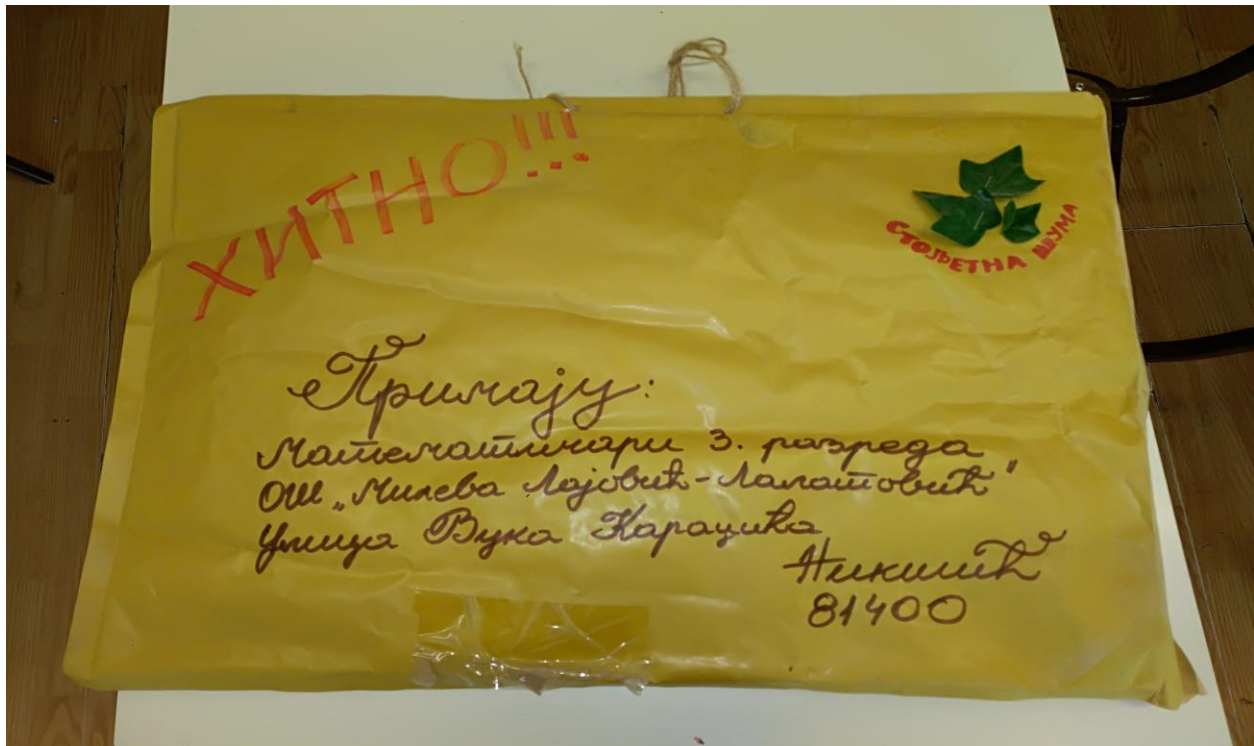 ХИТНО!!!
СТОЉЕТНА ШУМА
Примају:
Математичари 3. разреда
ОШ „Милева Лајовић-Лалатовић"
Улица Вука Караџића
Никшић
81400